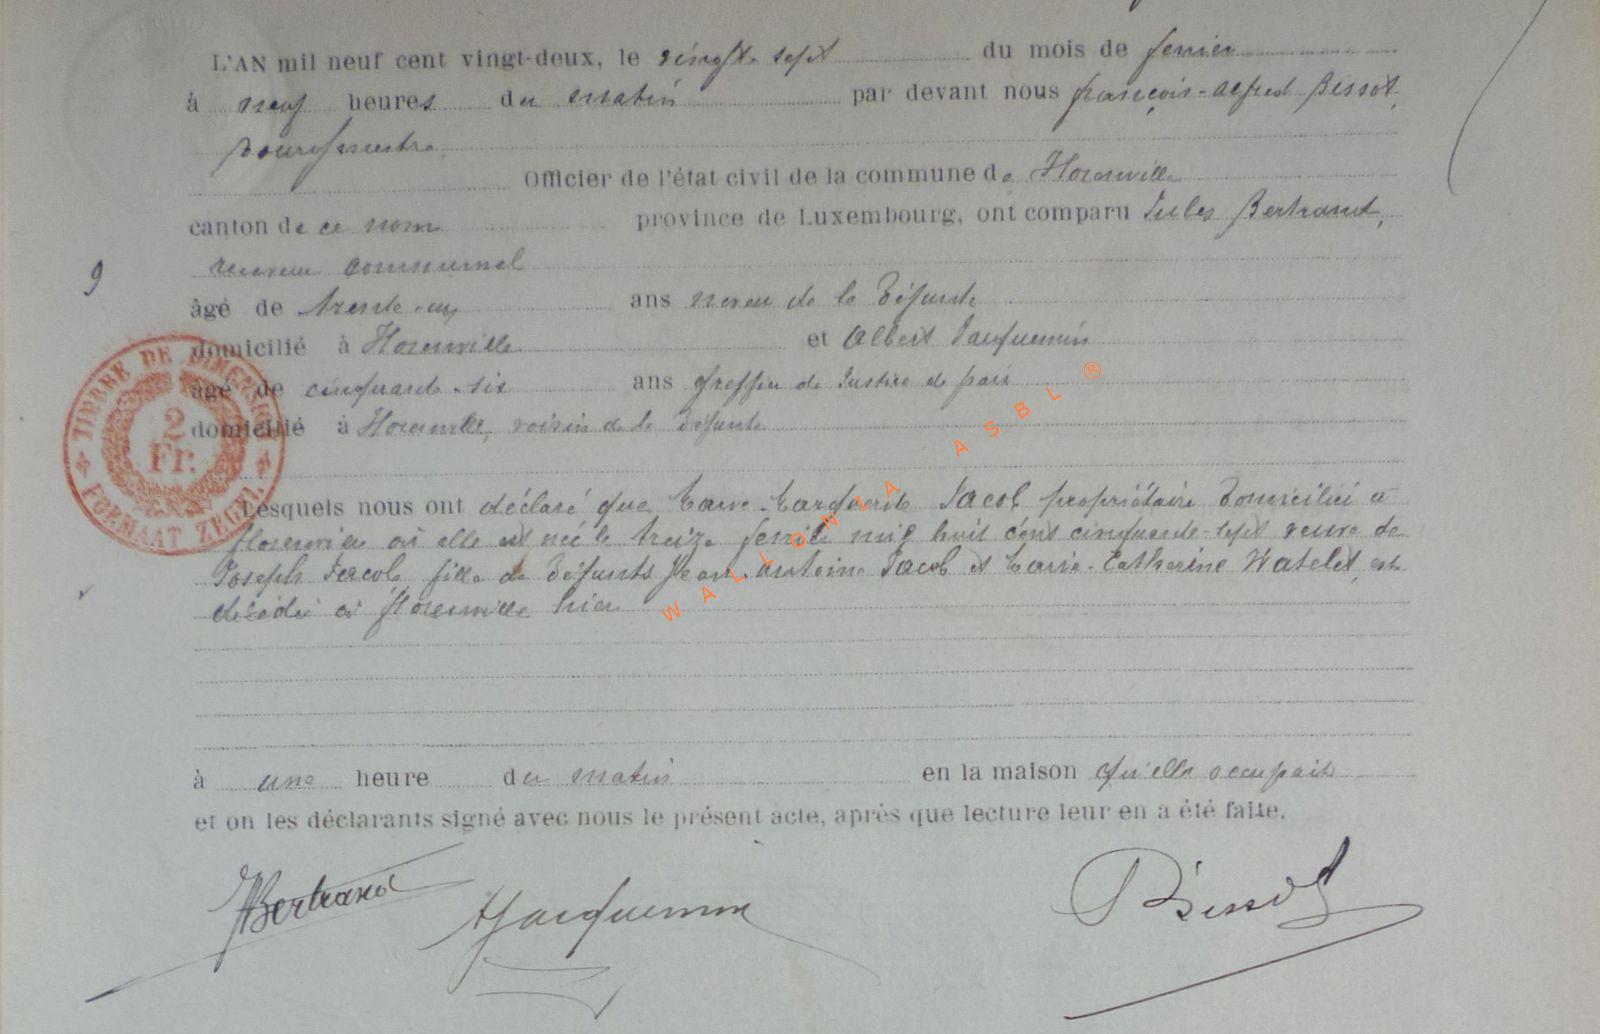 L'AN mil neuf cent vingt-deux, le vingt sept du mois de février
à neuf heures du matin par devant nous françois-alfred Bissot,
Bourgmestre
Officier de l'état civil de la commune de Florenville
canton de ce nom province de Luxembourg, ont comparu Jules Bertrand,
receveur communal
9
âgé de trente-un ans neveu de la Défunte
domicilié à Florenville et Albert Jacquemin
âgé de cinquante-six ans greffier de Justice de paix
domicilié à Florenville, voisin de la Défunte
TIMBRE DE DIMENSION
2
Fr.
FORMAAT ZEGEL
Lesquels nous ont déclaré que Marie-Marguerite Jacob propriétaire Domiciliée à
florenville où elle est née le treize février mil huit cent cinquante-sept veuve de
Joseph Jacob fille de Défunts Jean-Antoine Jacob et Marie-Catherine Watelet, est
décédée à florenville hier
à une heure du matin en la maison qu'elle occupait
et on les déclarants signé avec nous le présent acte, après que lecture leur en a été faite.
JBertrand AJacquemin Bissot
WALLONIA ASBL ®